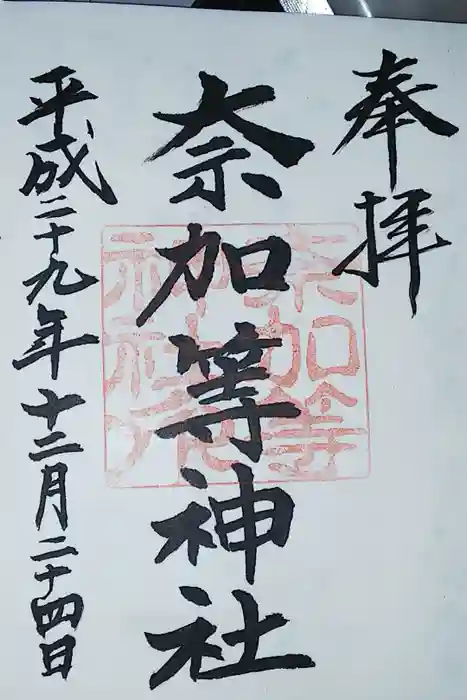 奉拝
奈加等神社
平成二十九年十二月二十四日
奈加等
神社之印